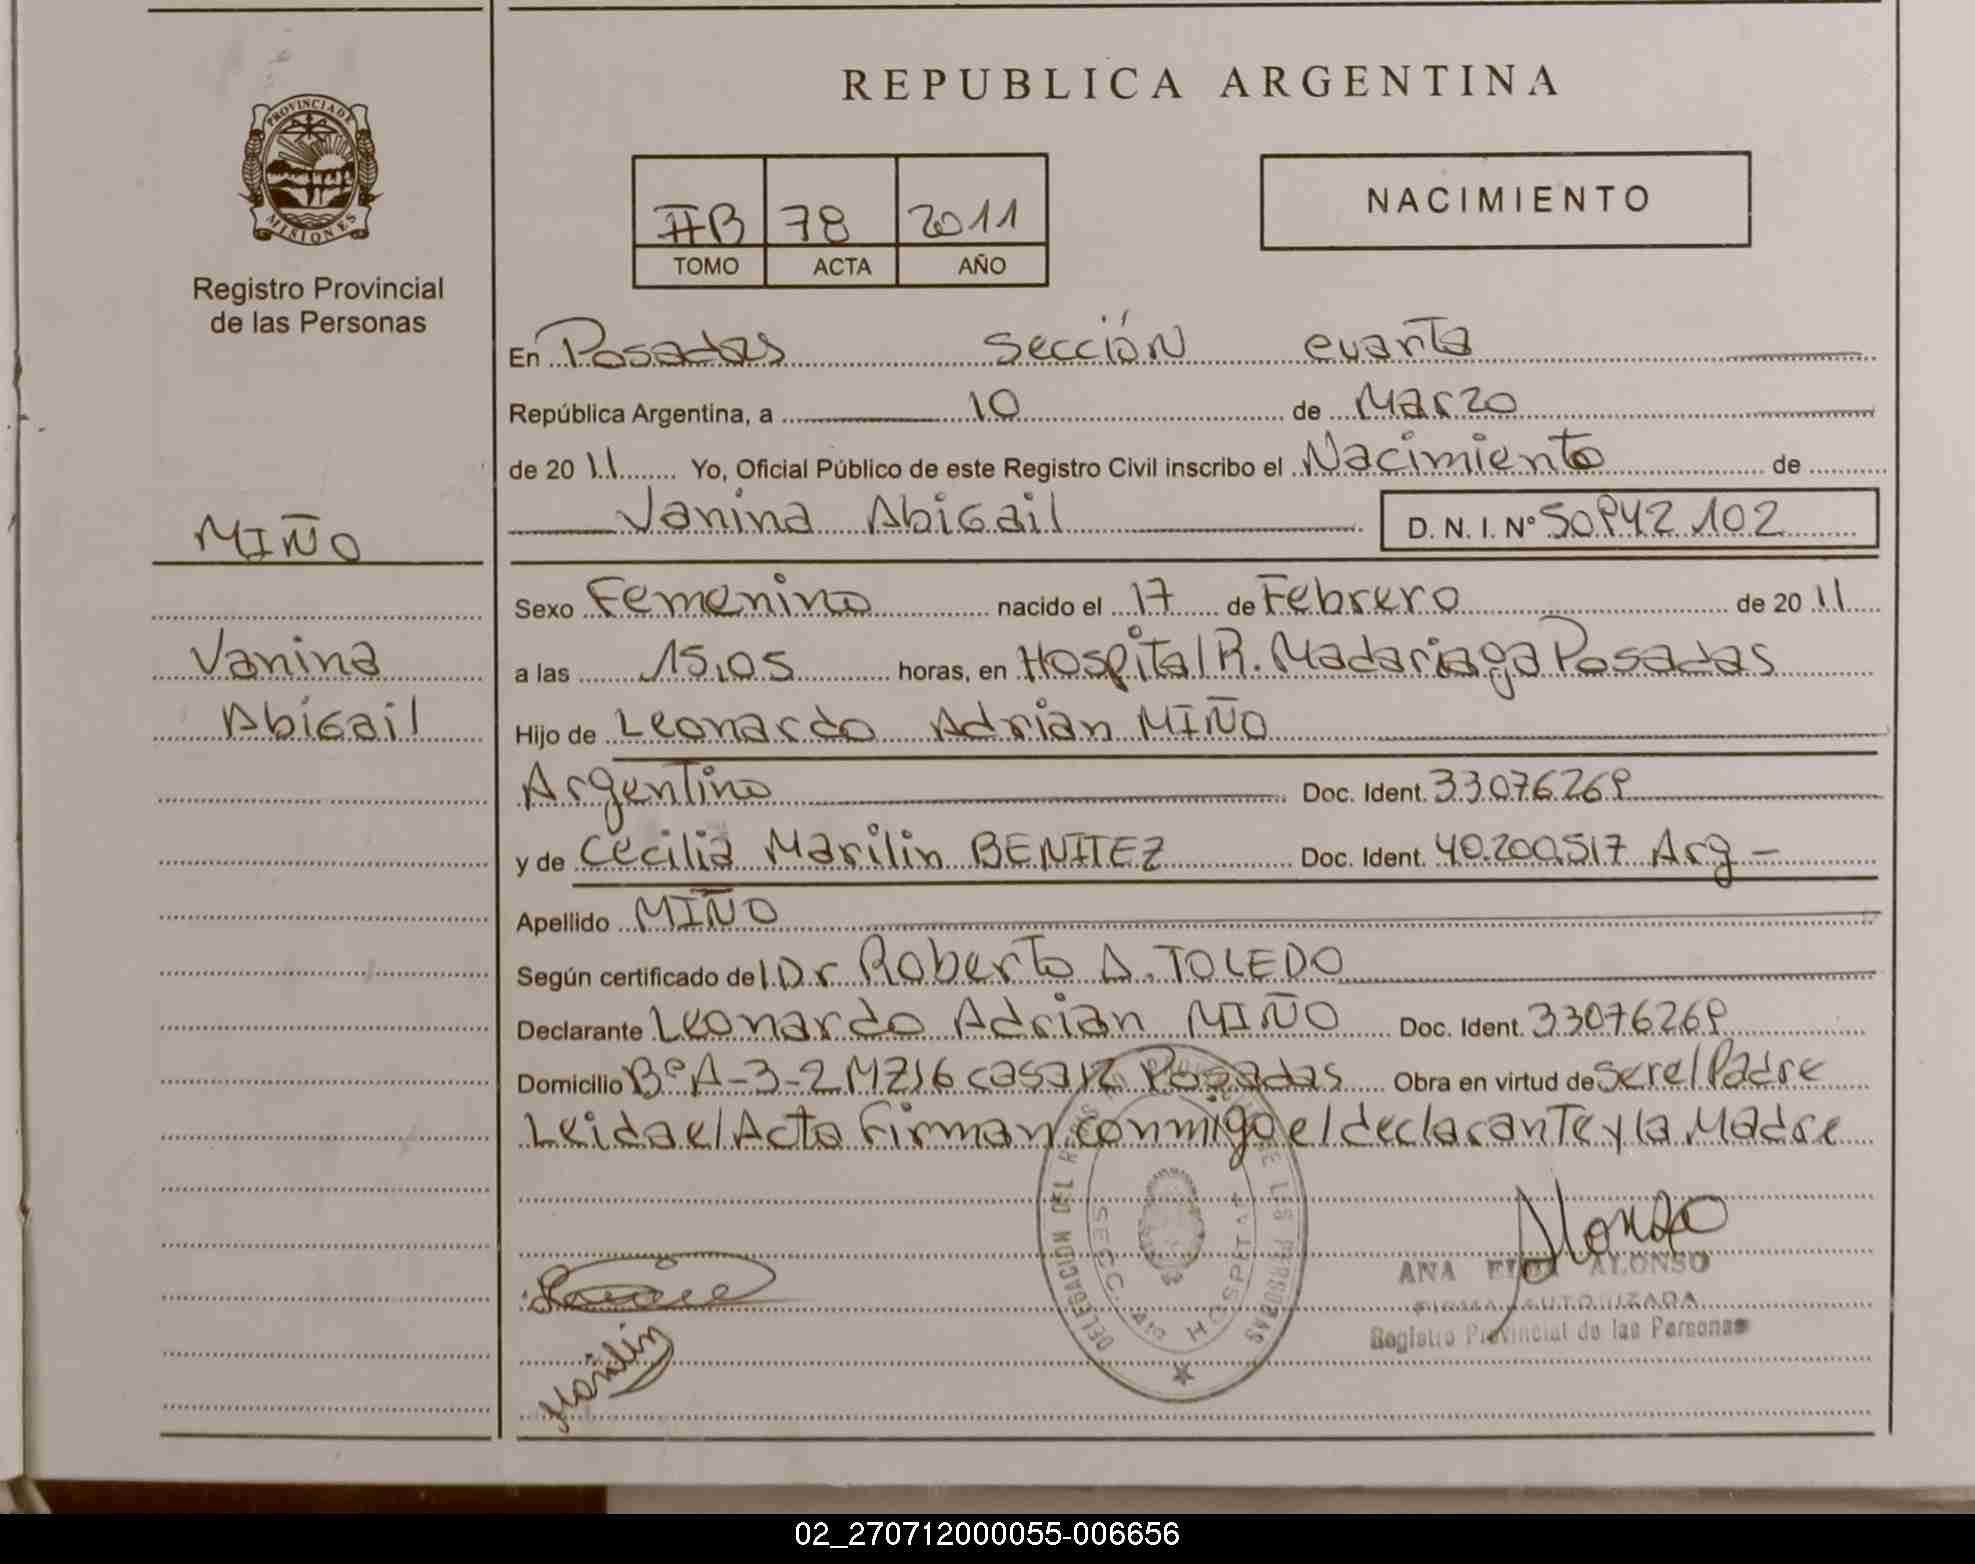 REPUBLICA ARGENTINA
PROVINCIA DE MISIONES
Registro Provincial
de las Personas
IIB 78 2011
TOMO ACTA AÑO
NACIMIENTO
En Posadas sección cuarta
República Argentina, a 10 de Marzo
de 20 11 Yo, Oficial Público de este Registro Civil inscribo el Nacimiento de
Vanina Abigail D. N. I. Nº 50.942.102
MIÑO
Vanina
Abigail
Sexo Femenino nacido el 17 de Febrero de 20 11
a las 15,05 horas, en Hospital R. Madariaga Posadas
Hijo de Leonardo Adrian MIÑO
Argentino Doc. Ident. 33.076.269
y de Cecilia Marilin BENITEZ Doc. Ident. 40.200.517 Arg -
Apellido MIÑO
Según certificado del Dr Roberto A. TOLEDO
Declarante Leonardo Adrian MIÑO Doc. Ident. 33076269
Domicilio Bº A-3-2 MZ16 casa12 Posadas Obra en virtud de ser el Padre
Leida el Acta Firman conmigo el declarante y la Madre
DELEGACION DEL REGISTRO DE LAS PERSONAS
SECC. 4ta HOSPITAL
Alonso
ANA ALONSO
FIRMA AUTORIZADA
Registro Provincial de las Personas
Marilin
02_270712000055-006656